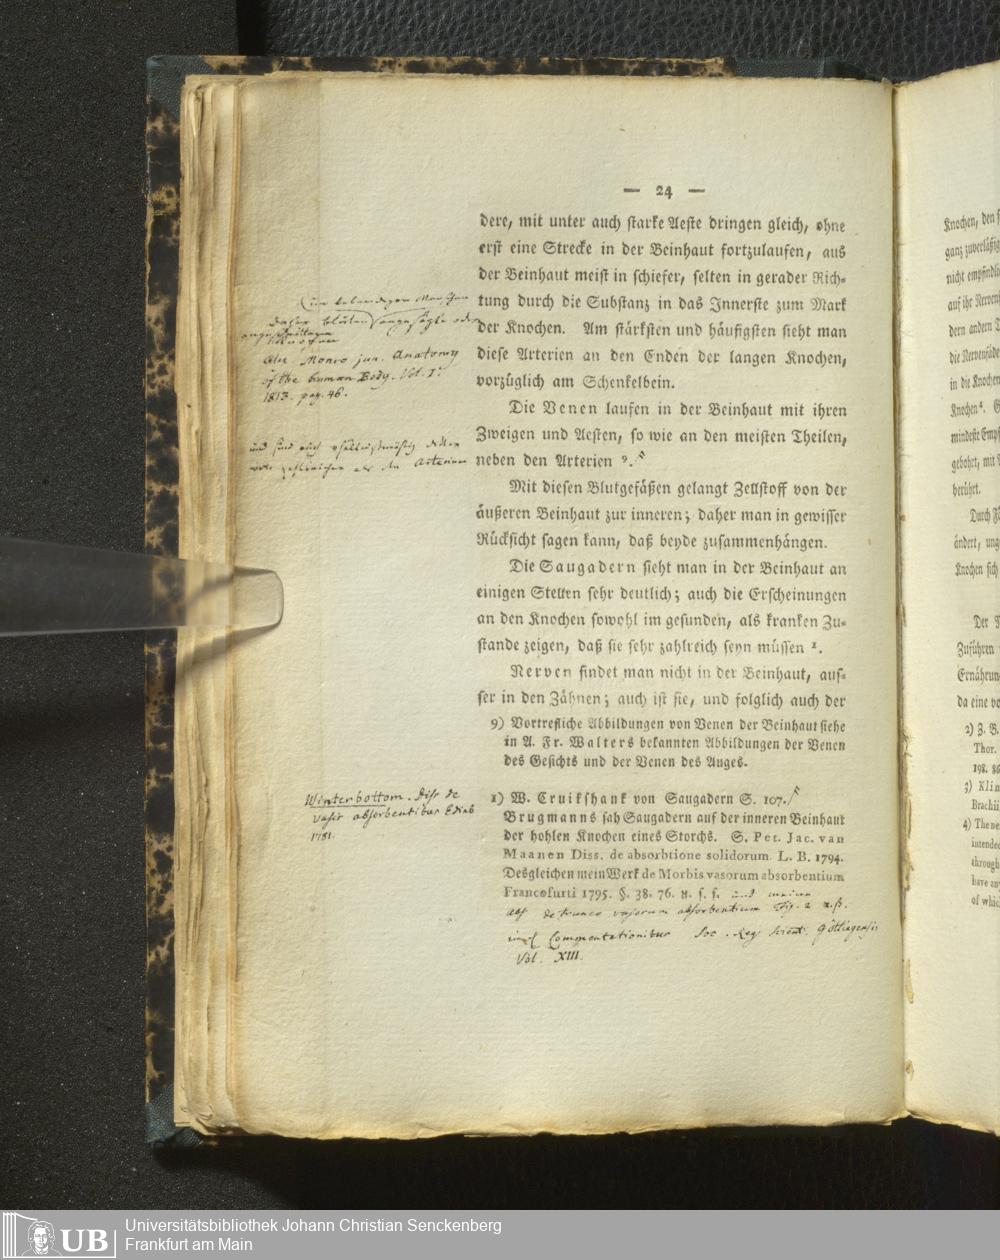 — 24 —
dere, mit unter auch starke Aeste dringen gleich, ohne
erst eine Strecke in der Beinhaut fortzulaufen, aus
der Beinhaut meist in schiefer, selten in gerader Rich-
tung durch die Substanz in das Innerste zum Mark
der Knochen. Am stärksten und häufigsten sieht man
diese Arterien an den Enden der langen Knochen,
vorzüglich am Schenkelbein.
Die Venen laufen in der Beinhaut mit ihren
Zweigen und Aesten, so wie an den meisten Theilen,
neben den Arterien 9.
Mit diesen Blutgefäßen gelangt Zellstoff von der
äußeren Beinhaut zur inneren; daher man in gewisser
Rücksicht sagen kann, daß beyde zusammenhängen.
Die Saugadern sieht man in der Beinhaut an
einigen Stellen sehr deutlich; auch die Erscheinungen
an den Knochen sowohl im gesunden, als kranken Zu-
stande zeigen, daß sie sehr zahlreich seyn müssen 1.
Nerven findet man nicht in der Beinhaut, auf-
ser in den Zähnen; auch ist sie, und folglich auch der
9) Vortrefliche Abbildungen von Venen der Beinhaut siehe
in A. Fr. Walters bekannten Abbildungen der Venen
des Gesichts und der Venen des Auges.
1) W. Cruikshank von Saugadern S. 107.
Brugmanns sah Saugadern auf der inneren Beinhaut
der hohlen Knochen eines Storchs. S. Pet. Jac. van
Maanen Diss. de absorbtione solidorum L. B. 1794.
Desgleichen mein Werk de Morbis vasorum absorbentium
Francofurti 1795. §. 38. 76. u. s. f. und meine
de trunco vasorum absorbentium Fig. 2
Commentationibus Soc. Reg. Scient. Göttingensis
Vol. XIII.
Daher bluten angesägte oder
Knochen
Alex. Monro jun. Anatomy
of the human Body. Vol. I.
1813. pag. 46.
und sind auch verhältnißmäßig dicker
zahlreicher als die Arterien
Winterbottom. Diss de
vasis absorbentibus Edinb
1781.
Knochen, den
nicht
auf ihr Nerven
dern andern
die Nervenfäde
in die Knochen
Knochen 4.
gebohrt, mit
berührt.
Durch
ändert,
Knochen sich
Der
Zuführen
Ernährun
da eine
2) Z. B.
Thor.
198.
3)
Brachii
4)
intended
through
have any
of whic
UB
Universitätsbibliothek Johann Christian Senckenberg
Frankfurt am Main